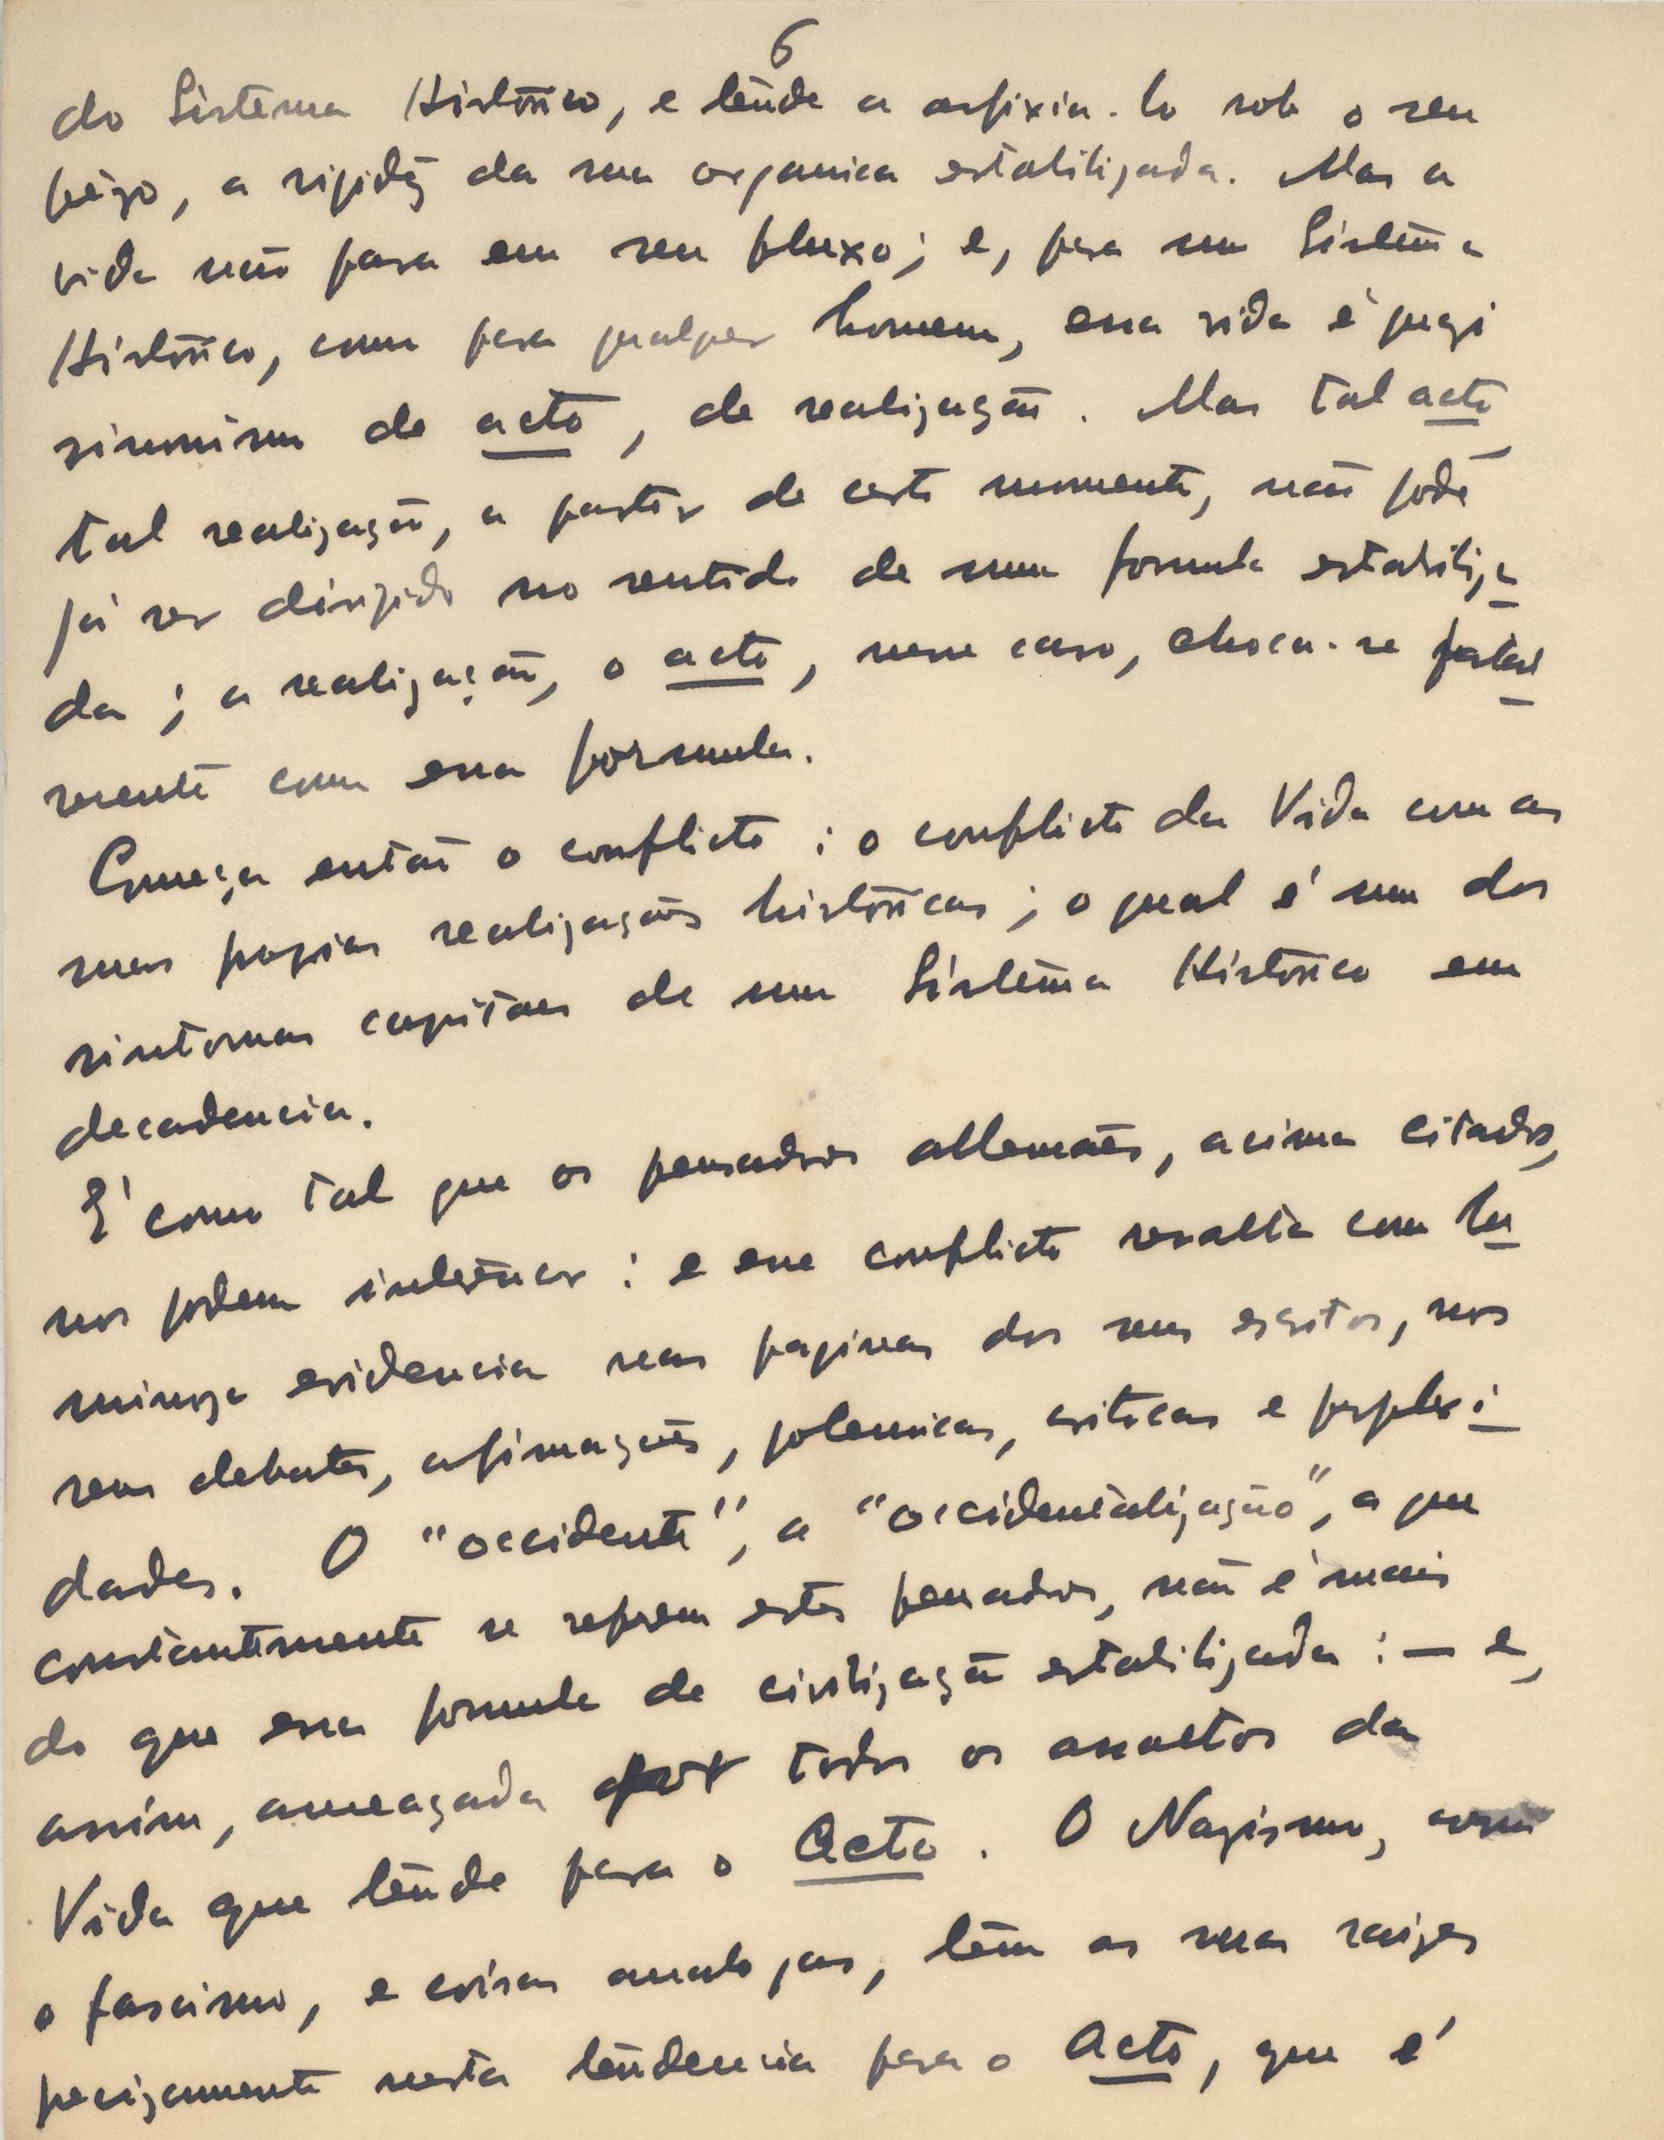 6
do Sistema Histórico, e tende a asfixia-lo sob o seu
pêzo, a rigidêz da sua organica estabilizada. Mas a
vida não para em seu fluxo; e, para um Sistema
Histórico, como para qualquer homem, essa vida é quazi
sinonimo de acto, de realização. Mas tal acto,
tal realização, a partir de certo momento, não pode
já ser dirigido no sentido de uma formula estabiliza
da; a realização, o acto, nesse caso, choca-se fatal
mente com essa formula.
Começa então o conflicto: o conflicto da Vida com as
suas proprias realizações históricas; o qual é um dos
sintomas capitaes de um Sistema Histórico em
decadencia.
É como tal que os pensadores allemães, acima citados,
nos podem interessar: e esse conflicto resalta com lu
minoza evidencia nas paginas dos seus escritos, nos
seus debates, afirmações, polemicas, criticas e perplexi
dades. O "occidente", a "occidentalização", a que
constantemente se referem estes pensadores, não é mais
do que essa formula de civilização estabilizada: — e,
assim, ameaçada por todos os assaltos da
Vida que tende para o Acto. O Nazismo, como
o fascismo, e coisas analogas, têm as suas raizes
precizamente nesta tendencia para o Acto, que é